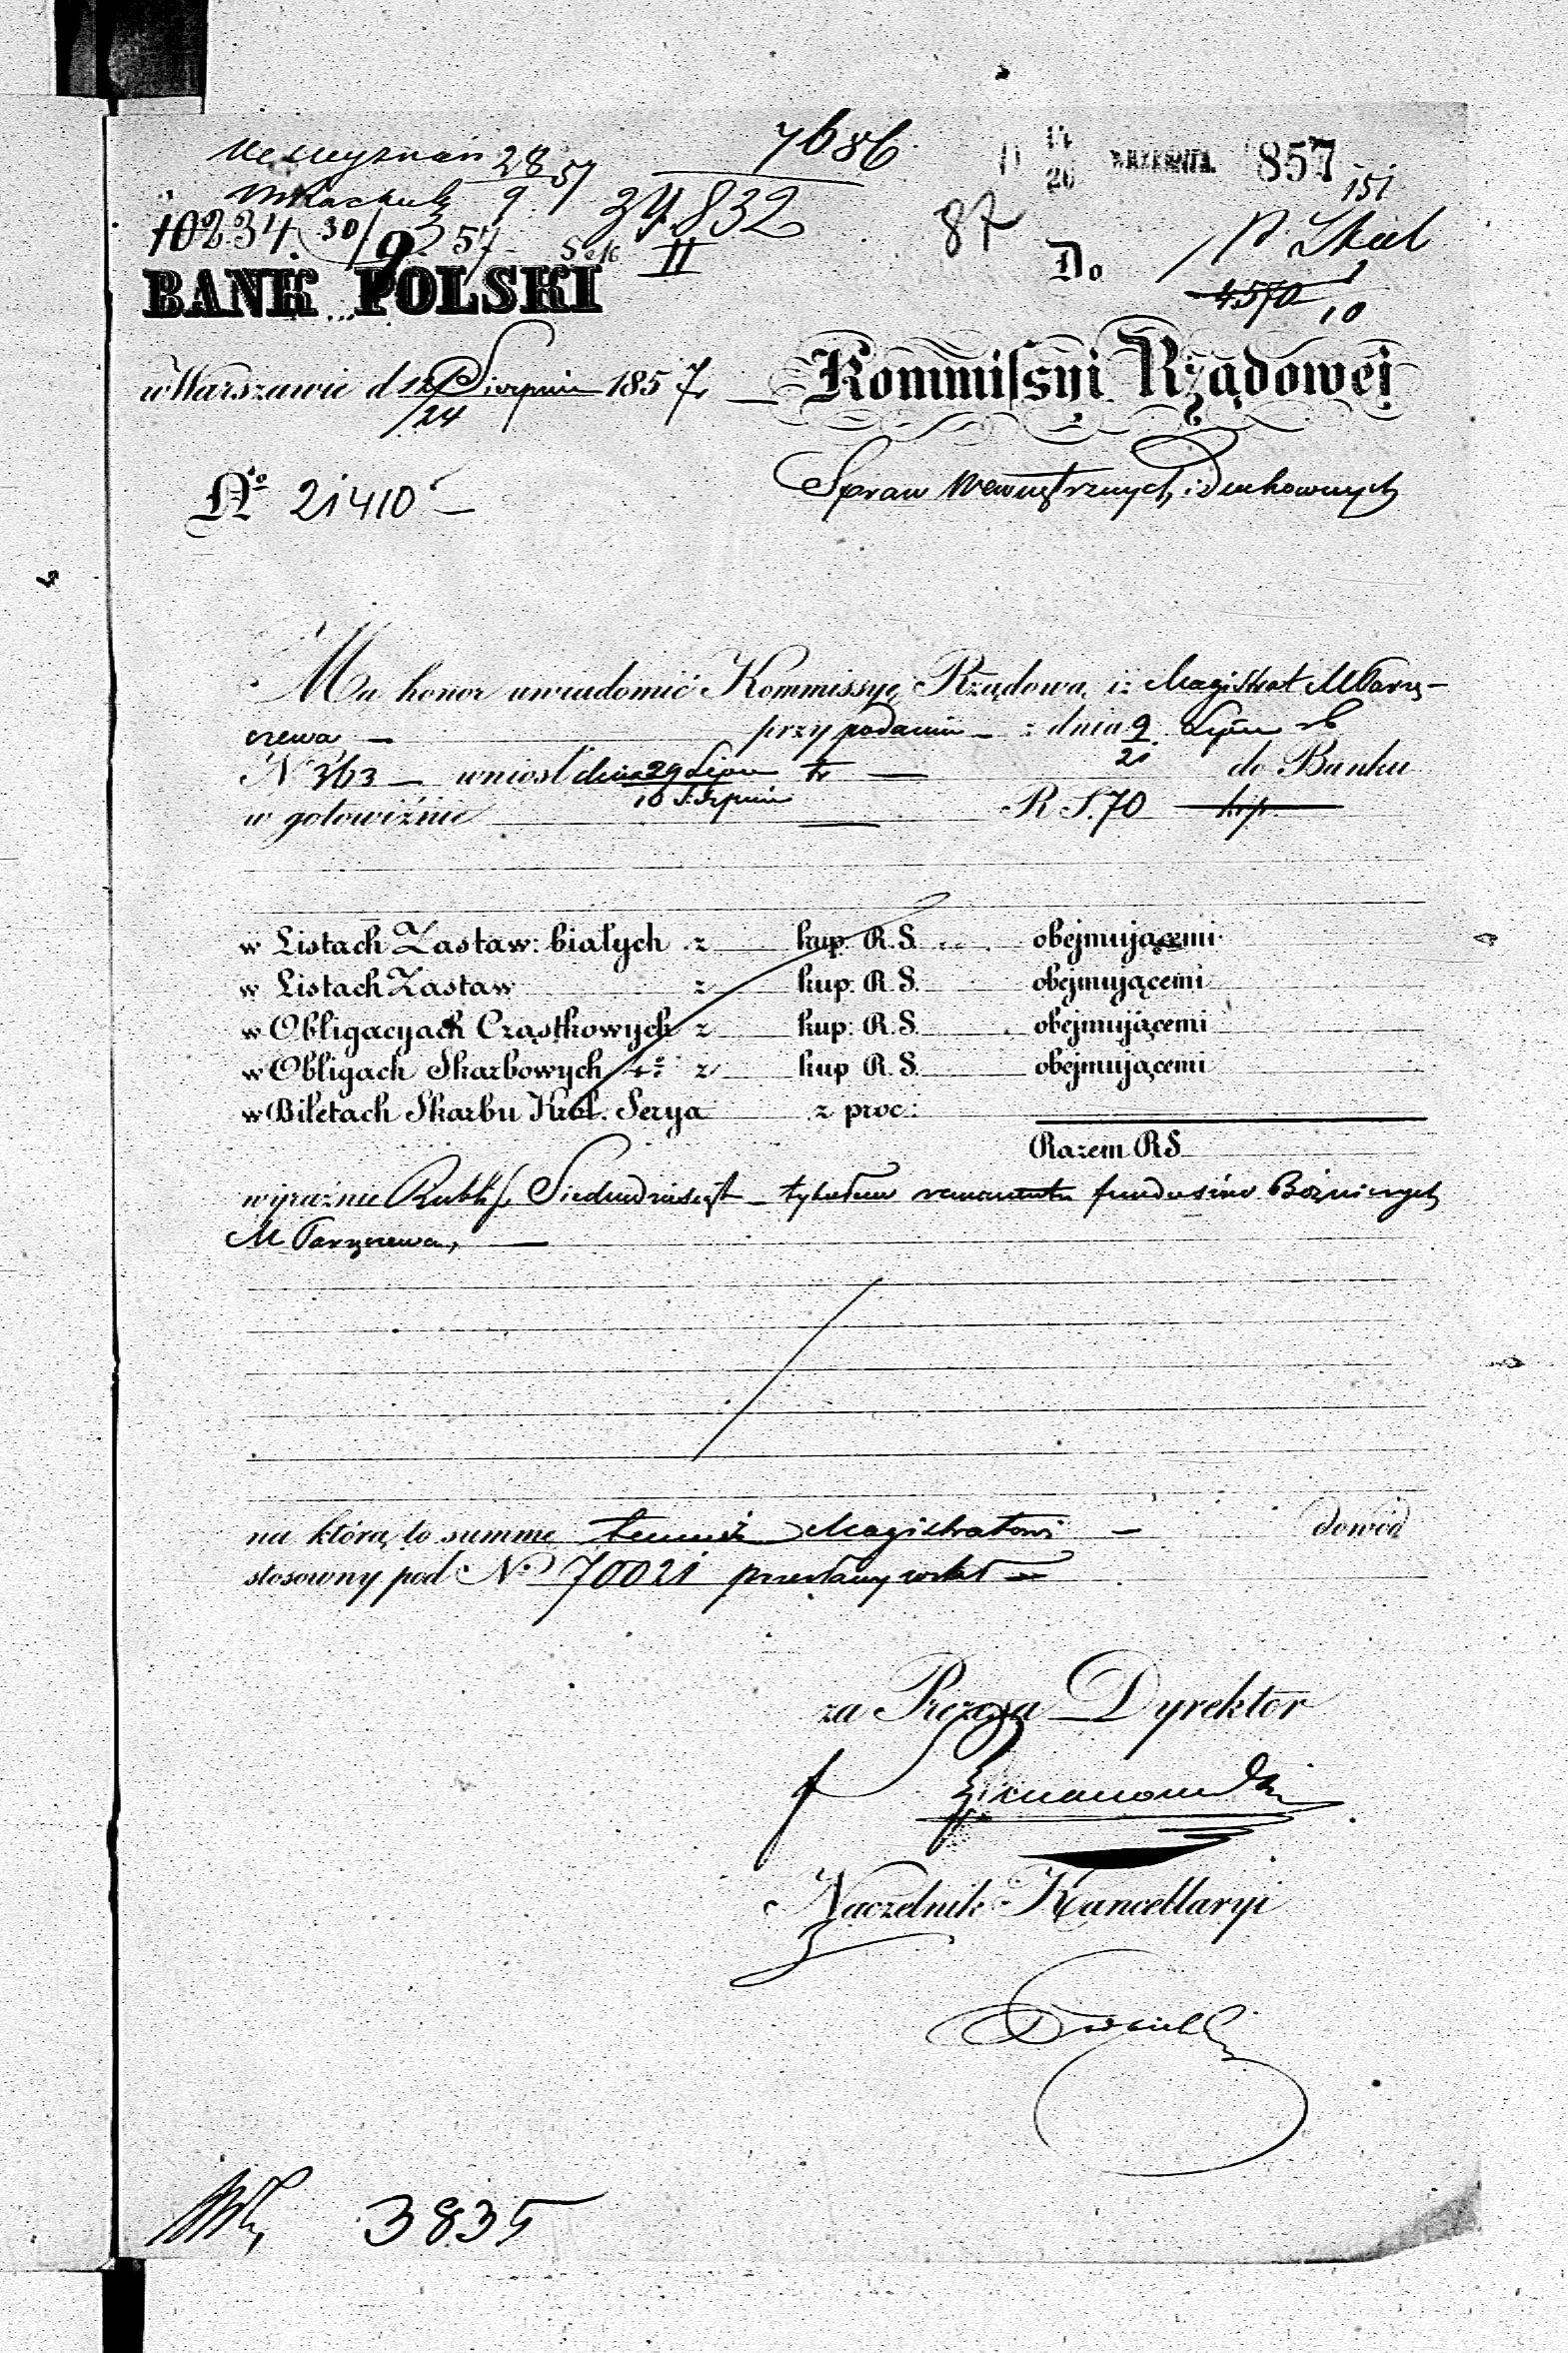 7686
14
26 WRZEŚNIA 857
151
28
9 57
34,832
10234 30/9 57 Sek II
87
Do
4570
10
BANK POLSKI
w Warszawie d 12/24 Sierpnia 1857 r.
Kommissyi Rządowej
No 21410
Spraw Wewnętrznych i Duchownych
Ma honor uwiadomić Kommissyę Rządową, iż Magistrat M Parzę-
czewa przy podaniu z dnia 9/21 Lipca rb
N 363 wniósł dnia 29 Lipca tr do Banku
10 Sierpnia
w gotowiźnie R S. 70 kip
w Listach Zastaw: białych z kup: R.S. obejmującemi
w Listach Zastaw z kup: R.S. obejmującemi
w Obligacyach Cząstkowych z kup: R.S. obejmującemi
w Obligach Skarbowych 4% z kup R.S. obejmującemi
w Biletach Skarbu Król. Serya z proc:
Razem RS
wyraźnie Rubli s. Siedmdziesiąt tytułem remanentu funduszów Bożniczych
M Parzęczewa,
na którą to summę temuż Magistratowi dowód
stosowny pod No 70021 przesłany został
za Prezesa Dyrektor
Naczelnik Kancellaryi
3835